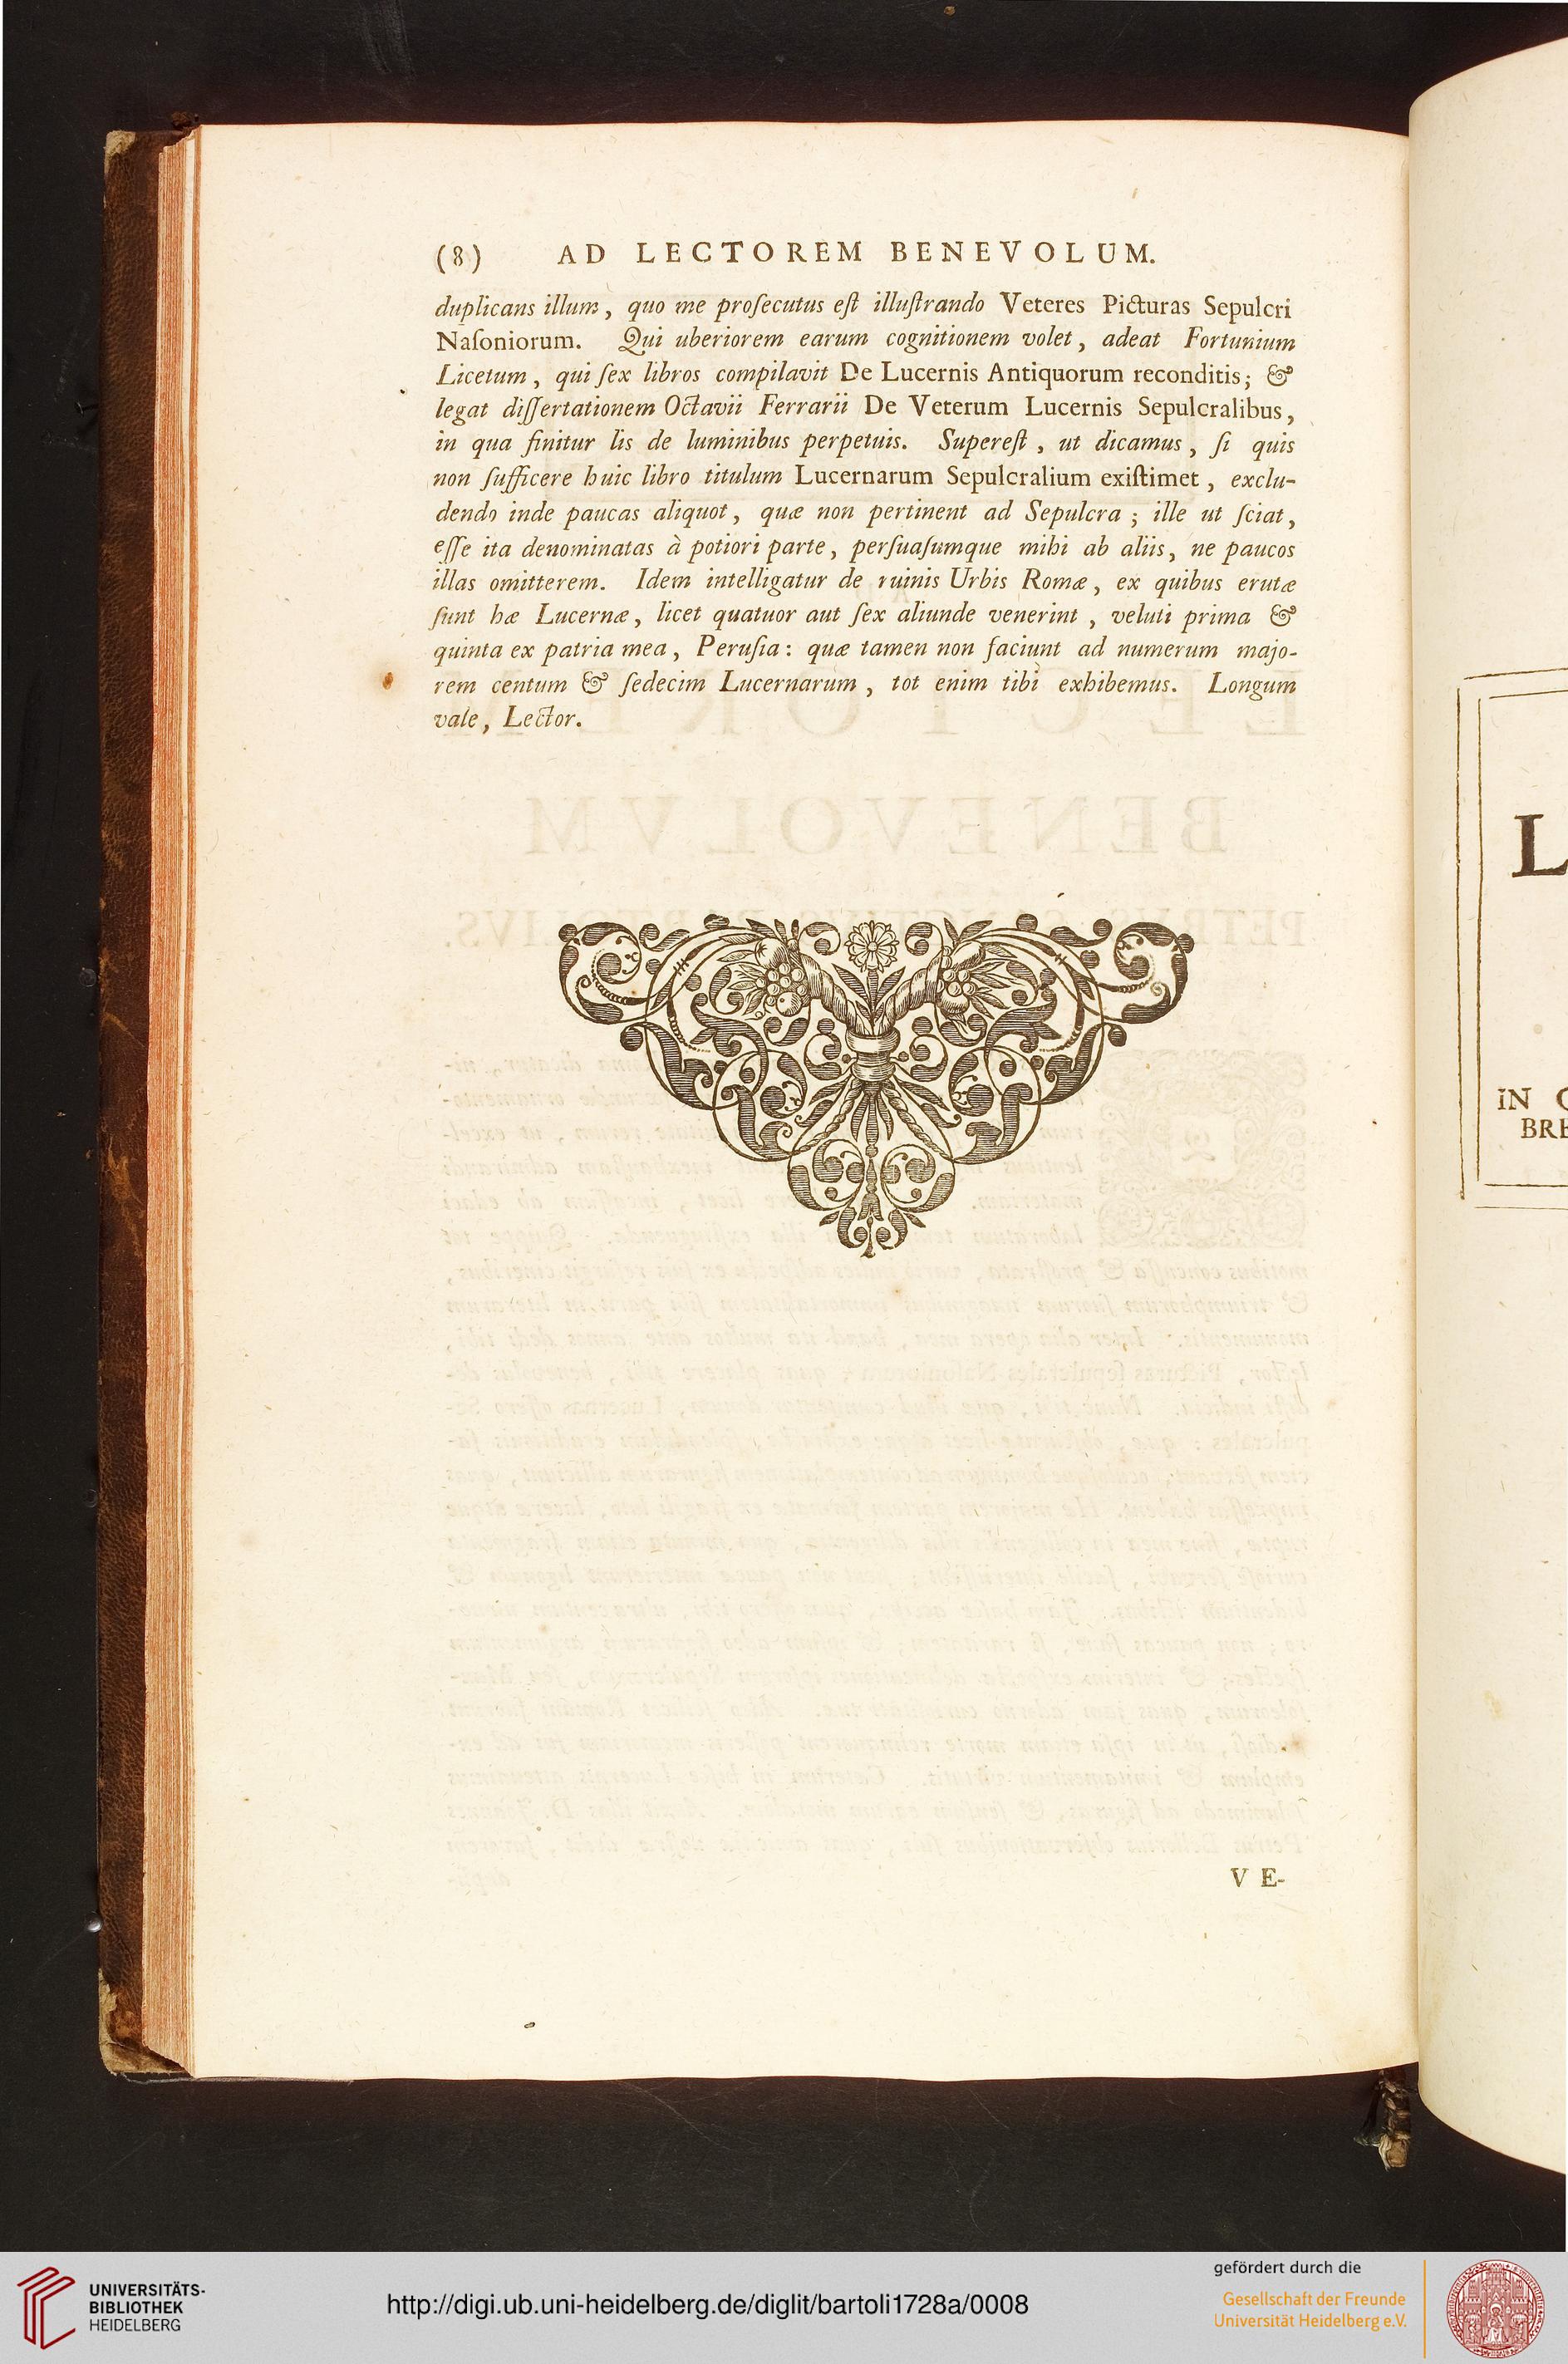 (8) AD LECTOREM BENEVOLUM.
duplicans illum, quo me proſecutus eſt illuſtrando Veteres Picturas Sepulcri
Naſoniorum. Qui uberiorem earum cognitionem volet, adeat Fortunium
Licetum, qui ſex libros compilavit De Lucernis Antiquorum reconditis; &
legat diſſertationem Octavii Ferrarii De Veterum Lucernis Sepulcralibus,
in qua finitur lis de luminibus perpetuis. Supereſt, ut dicamus, ſi quis
non ſufficere huic libro titulum Lucernarum Sepulcralium exiſtimet, exclu-
dendo inde paucas aliquot, quæ non pertinent ad Sepulcra; ille ut ſciat,
eſſe ita denominatas à potiori parte, perſuaſumque mihi ab aliis, ne paucos
illas omitterem. Idem intelligatur de ruinis Urbis Romæ, ex quibus erutæ
ſunt hæ Lucernæ, licet quatuor aut ſex aliunde venerint, veluti prima &
quinta ex patria mea, Peruſia: quæ tamen non faciunt ad numerum majo-
rem centum & ſedecim Lucernarum, tot enim tibi exhibemus. Longum
vale, Lector.
VE-
L
IN
BRE
UNIVERSITÄTS-
BIBLIOTHEK
HEIDELBERG
http://digi.ub.uni-heidelberg.de/diglit/bartoli1728a/0008
gefördert durch die
Gesellschaft der Freunde
Universität Heidelberg e.V.